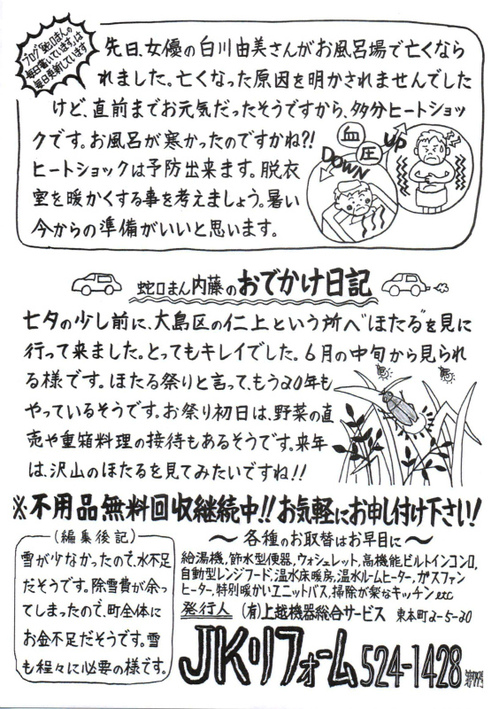 ブログ「蛇口まんの
毎日書いています」は
毎日更新しています
先日、女優の白川由美さんがお風呂場で亡くなら
れました。亡くなった原因を明かされませんでした
けど、直前までお元気だったそうですから、多分ヒートショッ
クです。お風呂が寒かったのですかね?!
ヒートショックは予防出来ます。脱衣
室を暖かくする事を考えましょう。暑い
今からの準備がいいと思います。
血圧
UP
DOWN
蛇口まん内藤のおでかけ日記
七夕の少し前に、大島区の仁上という所へ"ほたる"を見に
行って来ました。とってもキレイでした。6月の中旬から見られ
る様です。ほたる祭りと言って、もう20年も
やっているそうです。お祭り初日は、野菜の直
売や重箱料理の接待もあるそうです。来年
は、沢山のほたるを見てみたいですね!!
※不用品無料回収継続中!!お気軽にお申し付け下さい!
(編集後記)
雪が少なかったので、水不足
だそうです。除雪費が余っ
てしまったので、町全体に
お金不足だそうです。雪
も程々に必要の様です。
〜各種のお取替はお早目に〜
給湯機,節水型便器,ウォシュレット,高機能ビルトインコンロ,
自動型レンジフード,温水床暖房,温水ルームヒーター,ガスファン
ヒーター,特別暖かいユニットバス,掃除が楽なキッチンetc
発行人 (有)上越機器総合サービス 東本町2-5-30
JKリフォーム 524-1428